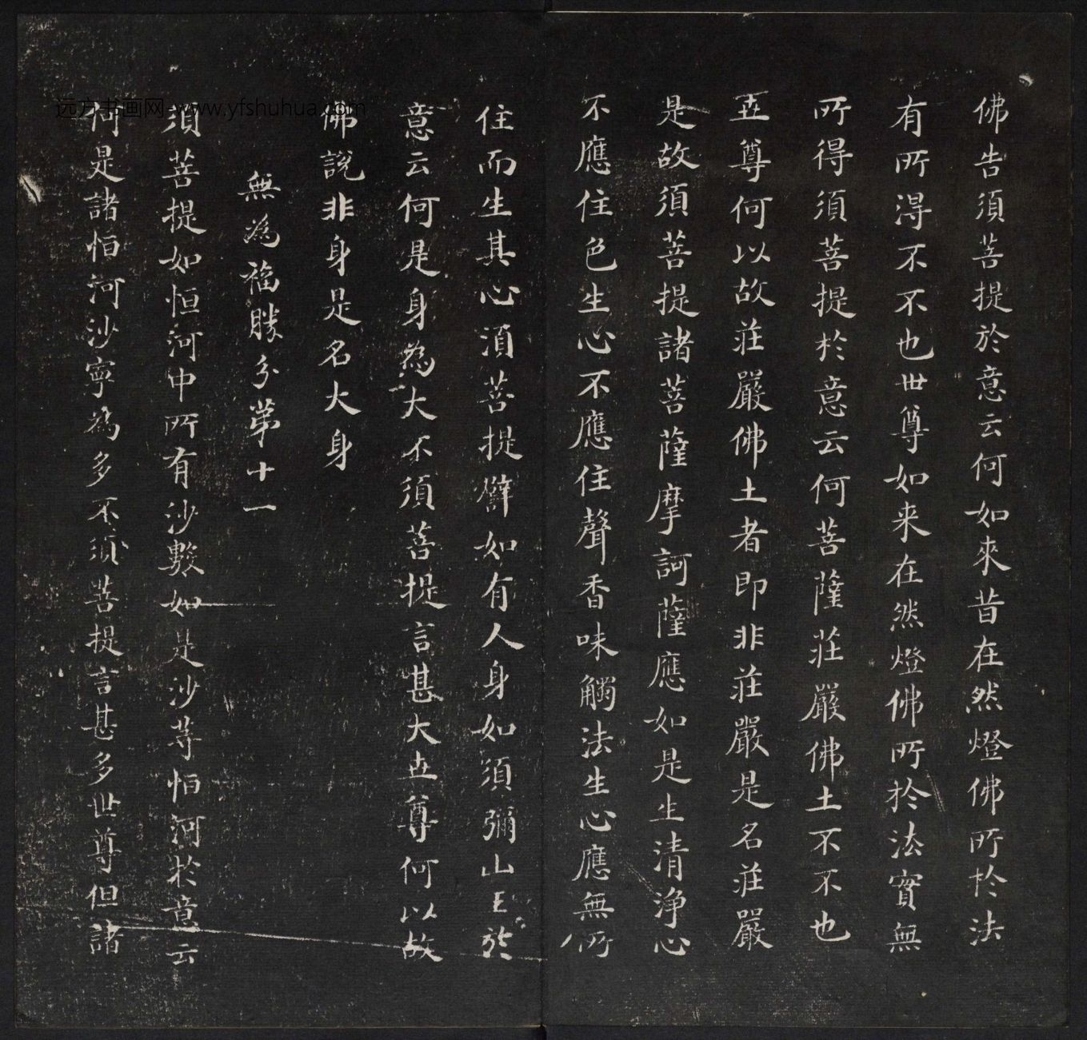 佛告須菩提於意云何如來昔在然燈佛所於法
有所淂不不也世尊如来在然燈佛所於法實無
所得須菩提於意云何菩薩莊嚴佛土不不也
世尊何以故莊嚴佛土者即非莊嚴是名莊嚴
是故須菩提諸菩薩摩訶薩應如是生清淨心
不應住色生心不應住聲香味觸法生心應無所
住而生其心須菩提辟如有人身如須彌山王於
意云何是身為大不須菩提言甚大世尊何以故
佛說非身是名大身
無為福勝分第十一
須菩提如恒河中所有沙數如是沙等恒河於意云
何是諸恒河沙寧為多不須菩提言甚多世尊但諸
远方书画网 www.yfshuhua.com